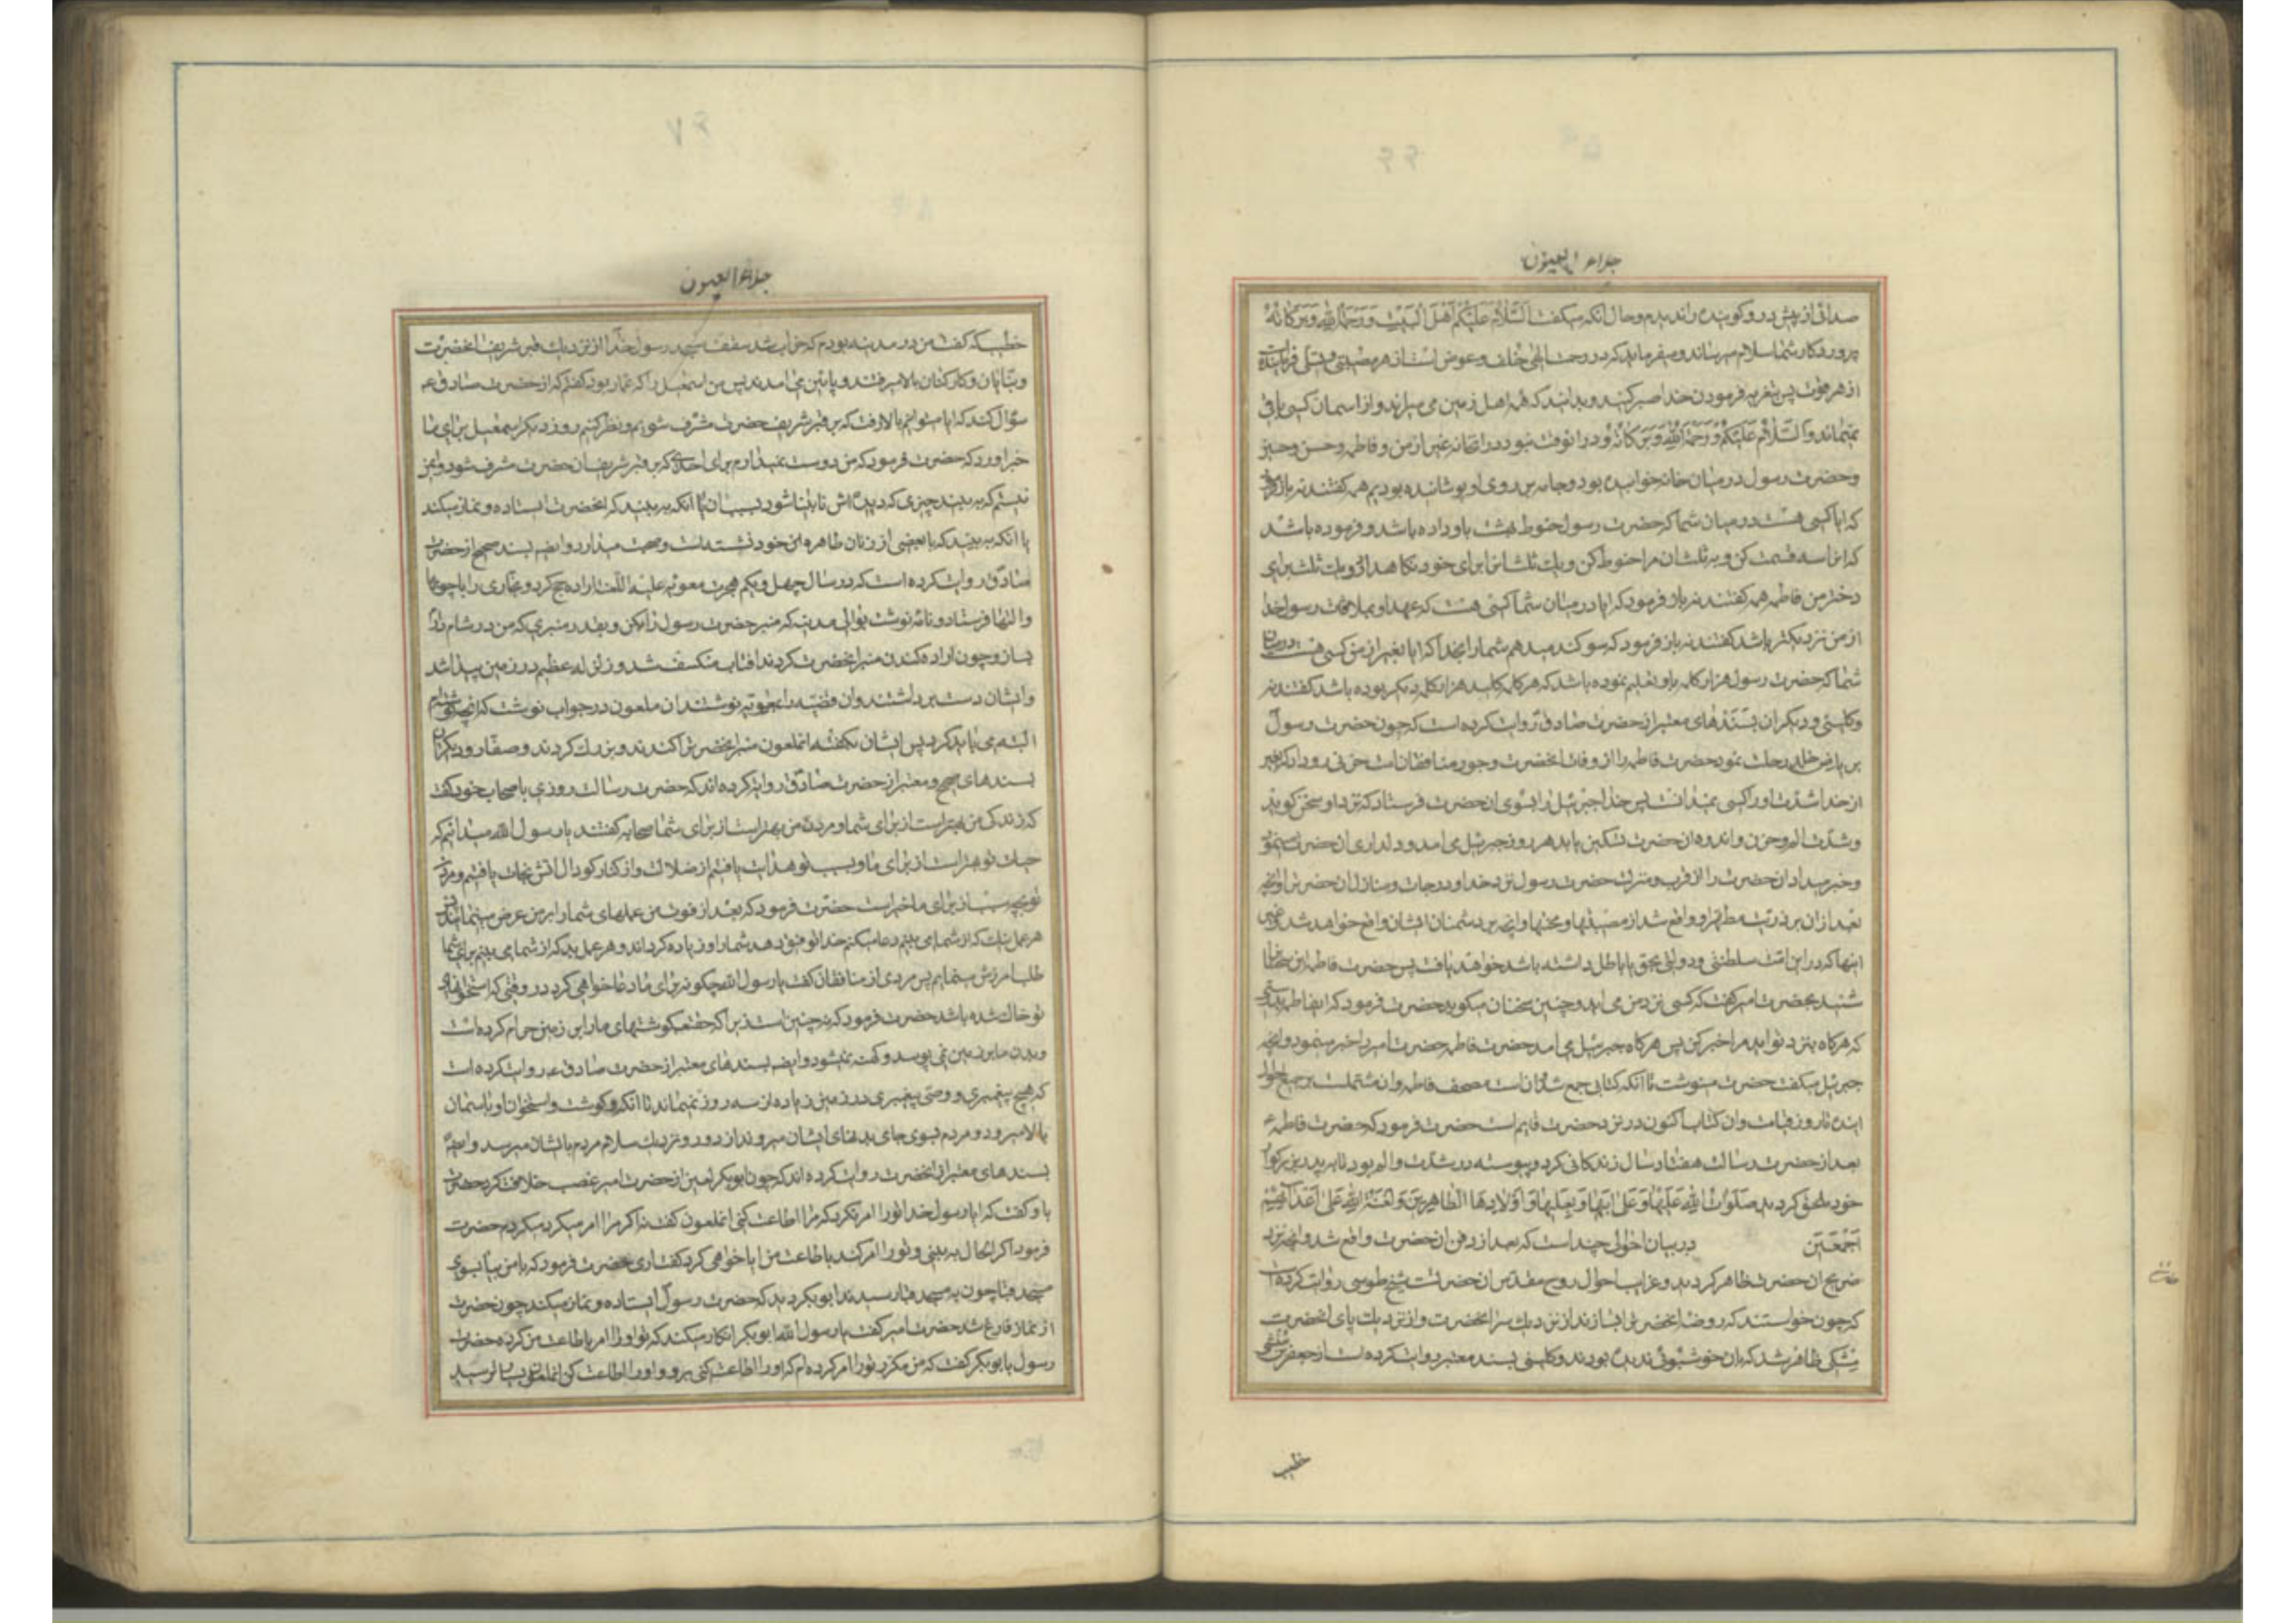 جلاء العیون
صدائی از پیش در و گوینده را ندیدم و حال آنکه میگفت السَّلامُ عَلَیْکُم اَهْلَ الْبَیْتِ وَ رَحْمَةُ اللهِ وَ بَرَکاتُهُ
پروردگار شما سلام میرساند و میفرماید که در رحمت الهی خلف و عوض است از هر مصیبتی و
از هر فوت پس بتعزیه فرمودن خدا صبر کنید و بدانید که همه اهل زمین می میرند و از اسمان کسی باقی
نمیماند و السَّلامُ عَلَیْکُم وَ رَحْمَةُ اللهِ وَ بَرَکاتُهُ و در انوقت نبود در انخانه غیر از من و فاطمه و حسن و حسین
و حضرت رسول در میان خانه خوابیده بود و جامه بر روی او پوشانیده بودیم همه گفتند نه باز فرمود
که ایا کسی هست در میان شما که حضرت رسول حنوط بهشت باو داده باشد و فرموده باشد
که این را سه قسمت کن و به ثلث ان مرا حنوط کن و یک ثلث انرا برای خود نگاهدار و یک ثلث برای
دختر من فاطمه همه گفتند نه باز فرمود که ایا در میان شما کسی هست که عهد او بملاقات رسول خدا
از من نزدیکتر باشد گفتند نه باز فرمود که سوگند میدهم شما را بخدا که ایا بغیر از من کسی هست در میان
شما که حضرت رسول هزار کلمه باو تعلیم نموده باشد که هر کلمه کلید هزار کلمه دیگر بوده باشد گفتند نه
و کلینی و دیگران بسندهای معتبر از حضرت صادق روایت کرده است که چون حضرت رسول
بریاض خلد رحلت نمود حضرت فاطمه را از وفات انحضرت و جور منافقان امت حزنی رو داد که غیر
از خدا شدت او را کسی نمیدانست پس خدا جبرئیل را بسوی ان حضرت فرستاد که نزد او سخن گوید
و شدت الم و حزن و اندوه ان حضرت تسکین یابد هر روز جبرئیل می امد و دلداری ان حضرت مینمود
و خبر میداد ان حضرت را از قرب و منزلت حضرت رسول نزد خدا و درجات و منازل ان حضرت و انچه
بعد از ان بر ذریت مطهر او واقع شد از مصیبتها و محنتها و انچه بر دشمنان ایشان واقع خواهد شد و
اینها که در این امت سلطنتی و دولتی بحق یا باطل داشته باشد خواهند یافت پس حضرت فاطمه این سخنان را
شنید بحضرت امیر گفت که کسی نزد من می اید و چنین سخنان میگوید حضرت فرمود که ایفاطمه
که هرگاه بنزد تو اید مرا خبر کن پس هرگاه جبرئیل می امد حضرت فاطمه حضرت امیر را خبر مینمود و انچه
جبرئیل میگفت حضرت مینوشت تا انکه کتابی جمع شد و ان است مصحف فاطمه و ان مشتملست بر جمیع احوال
اینده تا روز قیامت و ان کتاب اکنون در نزد حضرت قایم است حضرت فرمود که حضرت فاطمه ع
بعد از حضرت رسالت هفتاد سال زندگانی کرد و پیوسته در شدت و الم بود تا به پدر بزرگوار
خود ملحق گردید صَلَواتُ اللهِ عَلَیْها وَ عَلی اَبیها وَ بَعْلِها وَ اَوْلادِهَا الطّاهِرینَ وَ لَعْنَةُ اللهِ عَلی اَعْدائِهِمْ
اَجْمَعینَ در بیان احوالی چند است که بعد از دفن ان حضرت واقع شد و انچه نزد
ضریح ان حضرت ظاهر گردید و غرایب احوال روح مقدس ان حضرت شیخ طوسی روایت کرده است
که چون خواستند که روضه انحضرت را بسازند از نزدیک سر انحضرت و از نزدیک پای انحضرت
مشکی ظاهر شد که بان خوشبوئی ندیده بودند و کلینی بسند معتبر روایت کرده است از جعفر بن مثنی
خطیب
جلاء العیون
خطیب که گفت من در مدینه بودم که خراب شد سقف مسجد رسول خدا از نزدیک قبر شریف انحضرت
و بنایان و کارکنان بالا میرفتند و پایین می امدند پس من اسمعیل را که عمار بود گفتم که از حضرت صادق ع
سؤال کند که ایا میتوانیم بالا رفت که بر قبر شریف حضرت مشرف شویم و نظر کنیم روز دیگر اسمعیل برای ما
خبر اورد که حضرت فرمود که من دوست نمیدارم برای احدی که بر قبر شریف ان حضرت مشرف شود و ایمن
نیستم که به بیند چیزی که دیده اش نابینا شود بسبب ان یا انکه به بیند که انحضرت ایستاده و نماز میکند
یا انکه به بیند که با بعضی از زنان طاهره خود نشسته است و صحبت میدارد و ایضا بسند صحیح از حضرت
صادق روایت کرده است که در سال چهل و یکم هجرت معویه علیه اللعنه اراده حج کرد و نجاری را با چوبها
و التها فرستاد و نامه نوشت بوالی مدینه که منبر حضرت رسول را بکن و بقدر منبری که من در شام دارم
بساز و چون اراده کندن منبر انحضرت کردند افتاب منکسف شد و زلزله عظیم در زمین پیدا شد
و ایشان دست برداشتند و ان قضیه را بمعویه نوشتند ان ملعون در جواب نوشت که انچه نوشته ام
البته می باید کرد پس ایشان بگفته انملعون منبر انحضرت را کندند و بزرک کردند و صفار و دیگران
بسندهای صحیح و معتبر از حضرت صادق روایت کرده اند که حضرت رسالت روزی باصحاب خود گفت
که زندگی من بهتر است از برای شما و مردن من بهتر است از برای شما صحابه گفتند یا رسول الله میدانیم که
حیات تو بهتر است از برای ما و بسبب تو هدایت یافتیم از ضلالت و از کنار گودال اتش نجات یافتیم و مردن
تو بچه سبب از برای ما خیر است حضرت فرمود که بعد از فوت من عملهای شما را بر من عرض مینمایند پس
هر عمل نیک که از شما می بینم دعا میکنم خدا توفیق دهد شما را و زیاده گرداند و هر عمل بد که از شما می بینم برای شما
طلب امرزش مینمایم پس مردی از منافقان گفت یا رسول الله چگونه برای ما دعا خواهی کرد در وقتی که استخوانهای
تو خاک شده باشد حضرت فرمود که نه چنین است زیرا که حقتعالی گوشتهای ما را بر زمین حرام کرده است
و بدن ما در زمین نمی پوسد و کهنه نمیشود و ایضا بسندهای معتبر از حضرت صادق ع روایت کرده است
که هیچ پیغمبری و وصی پیغمبری در زمین زیاده از سه روز نمیماند تا انکه گوشت و استخوان او باسمان
بالا میرود و مردم بسوی جای بدنهای ایشان میروند از دور و نزدیک سلام مردم بایشان میرسد و ایضا
بسندهای معتبر از انحضرت روایت کرده اند که چون ابوبکر لعین از حضرت امیر غصب خلافت کرد حضرت
باو گفت که ایا رسول خدا تو را امر نکرد که مرا اطاعت کنی انملعون گفت نه اگر مرا امر میکرد میکردم حضرت
فرمود اگر الحال به بینی و تو را امر کند باطاعت من ایا خواهی کرد گفت اری حضرت فرمود که با من بیا بسوی
مسجد قبا چون به مسجد قبا رسیدند ابوبکر دید که حضرت رسول ایستاده و نماز میکند چون حضرت
از نماز فارغ شد حضرت امیر گفت یا رسول الله ابوبکر انکار میکند که تو او را امر باطاعت من کرده حضرت
رسول بابوبکر گفت که من مکرر تو را امر کرده ام که او را اطاعت کنی برو و او را اطاعت کن انملعون بسیار ترسید